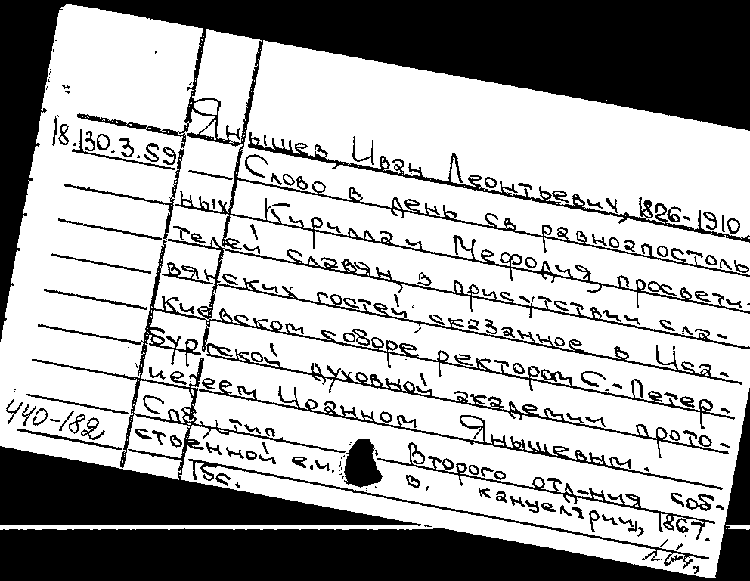 Янышев, Иван Леонтьевич, 1826-1910.
18.130.3.59
Слово в день св равноапостоль
ных Кирилла и Мефодия, просвети-
телей славян, в присутствии сла-
вянских гостей, сказанное в Иса-
киевском соборе ректором С.-Петер-
бургской духовной академии прото-
иереем Иоанном Янышевым.
440-182
Спб., тип. Второго отд-ния соб-
ственной е.и. в. канцелярии, 1867.
15с.